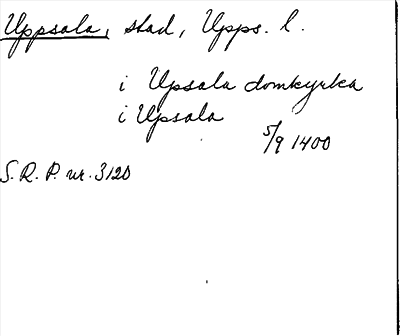 Uppsala, stad, Upps. l.
i Upsala domkyrka
i Upsala
5/9 1400
S.R.P. nr. 3120